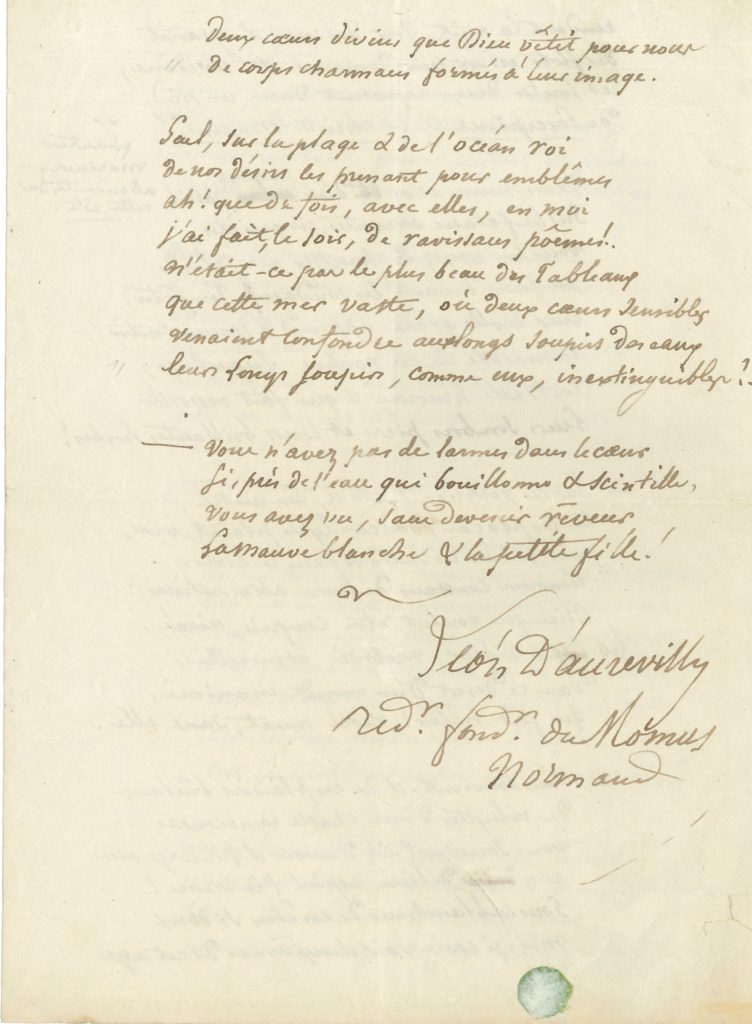 deux cœurs divins que Dieu vêtit pour nous
de corps charmans formés à leur image.
Seul, sur la plage & de l'océan roi
de nos désirs les prenant pour emblêmes
ah! que de fois, avec elles, en moi
j'ai fait, le soir, de ravissans poêmes!..
N'était-ce pas le plus beau des Tableaux
que cette mer vaste, où deux cœurs sensibles
venaient confondre aux longs soupirs des eaux
leurs longs soupirs, comme eux, inextinguibles?.
— Vous n'avez pas de larmes dans le cœur
si, près de l'eau qui bouillonne & scintille,
vous avez vu, sans devenir rêveur
La mauve blanche & la petite fille!
Léon D'aurevilly
réd.r fond.r du Mômus
Normand